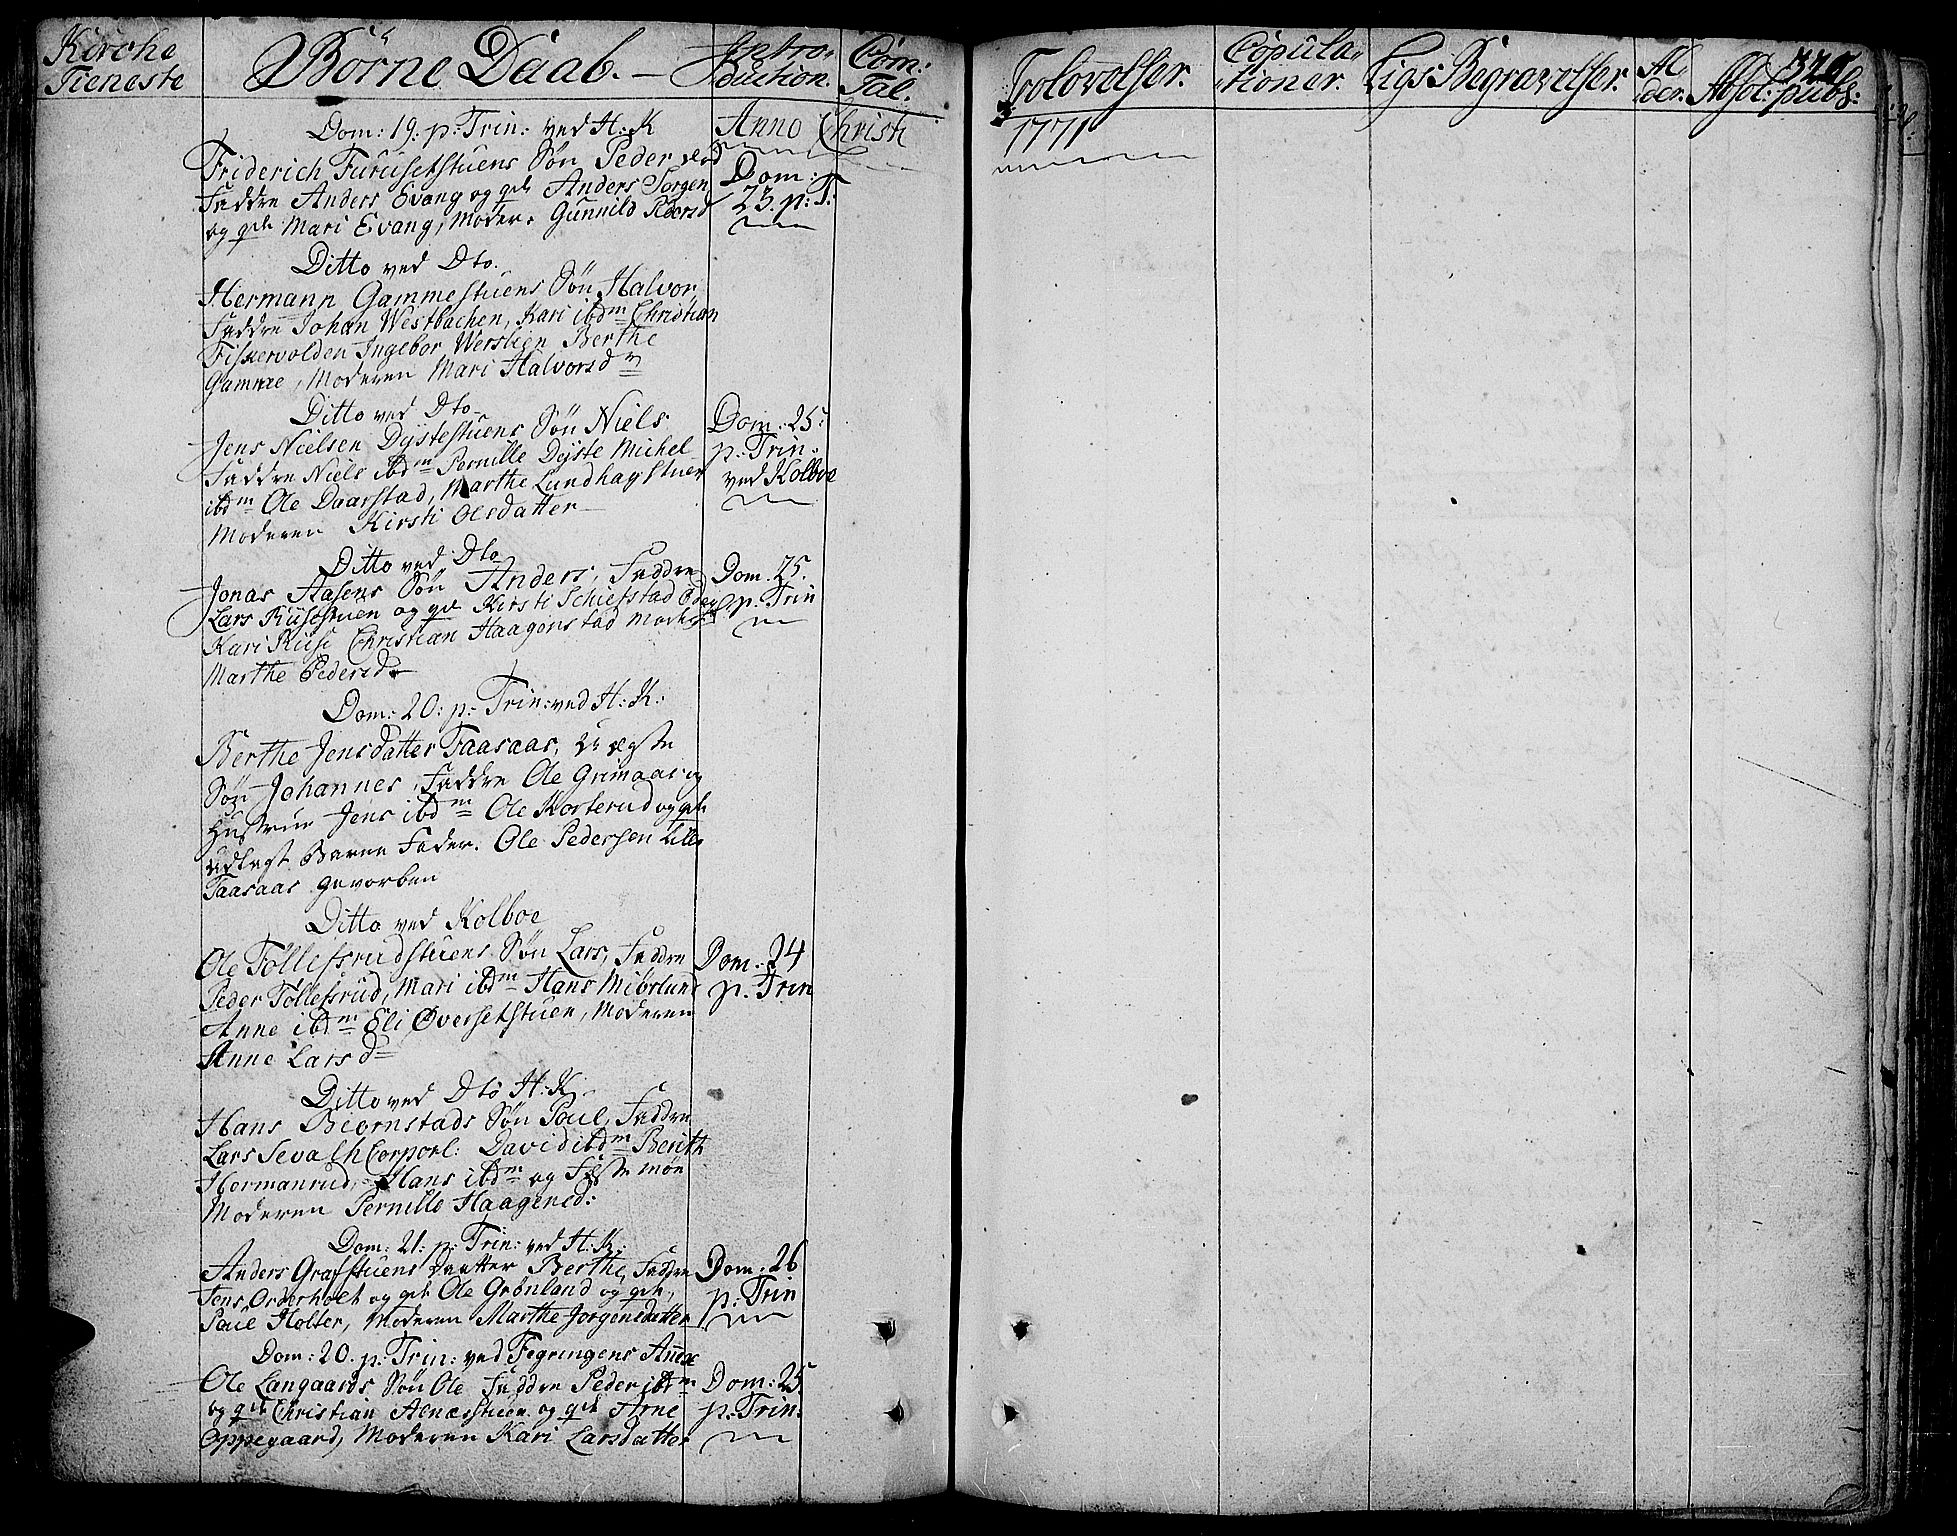 Kirche
Tieneste
Børne Daab.
Intro-
duction.
Com:
Tal.
Trolovelser.
Copula-
tioner.
Ligs Begravelser.
Al
der.
Absol: pub:
320
Anno Christi
1771
Dom: 19: p: Trin: ved H: K
Friderich Furusetstuens Søn Peder
Faddre Anders Evang og qde Anders
og qde Mari Evang, Moder: Gunnild Pedersd
Dom:
23. p: T:
Ditto ved Dto.
Hermann Gammestuens Søn Halvor
Faddre Johan Westbachen, Kari ibdm Christian
Fiskervolden Ingebor Werslien Berthe
Gamme, Moderen Mari Halvorsd
Ditto ved Dto
Jens Nielsen Dystestuens Søn Niels
Faddre Niels ibdm Pernille Dyste Michel
ibdm Ole Daarstad, Marthe Lundhagstuen
Moderen Kirsti Olesdatter
Dom. 25:
p: Trin:
ved Kolboe
Ditto ved Dto
Jonas Aasens Søn Anders, Faddre
Lars Riisestuen og qde Kirsti Schiefstad
Kari Riise Christian Haagenstad
Marthe Pedersd
Dom. 25.
p. Trin
Dom: 20: p: Trin: ved H: K:
Berthe Jensdatter Taasaas, Uægte
Søn Johannes, Faddre Ole Grimaas og
Hustrue Jens ibdm Ole Korterud og qde
Udlagt Barne Fader. Ole Pedersen Lille
Taasaas gevorben
Ditto ved Kolboe
Ole Tollefsrudstuens Søn Lars, Faddre
Peder Tollefsrud, Mari ibdm Hans Miørlund
Anne ibdm Eli Øversetstuen, Moderen
Anne Larsd
Dom. 24
p. Trin
Ditto ved Dto H: K:
Hans Beornstads Søn Poul, Faddre
Lars Sevalh Corporl: David ibdm Berith
Hermanrud, Hans ibdm og Feste møe
Moderen Pernille Haagensd:
Dom: 21: p: Trin: ved H: K:
Anders Grafstuens Daatter Berthe, Faddre
Jens Orderholt og qde Ole Grønland og qde,
Poul Holter, Moderen Marthe Jorgensdatter
Dom. 26
p: Trin
Dom: 20. p: Trin: ved Fegringens Anex
Ole Langaards Søn Ole Faddre Peder ibdm
og qde Christian Aenæsstuen og qde Arne
Oppegaard, Moderen Kari Larsdatter
Dom: 25.
p: Trin: